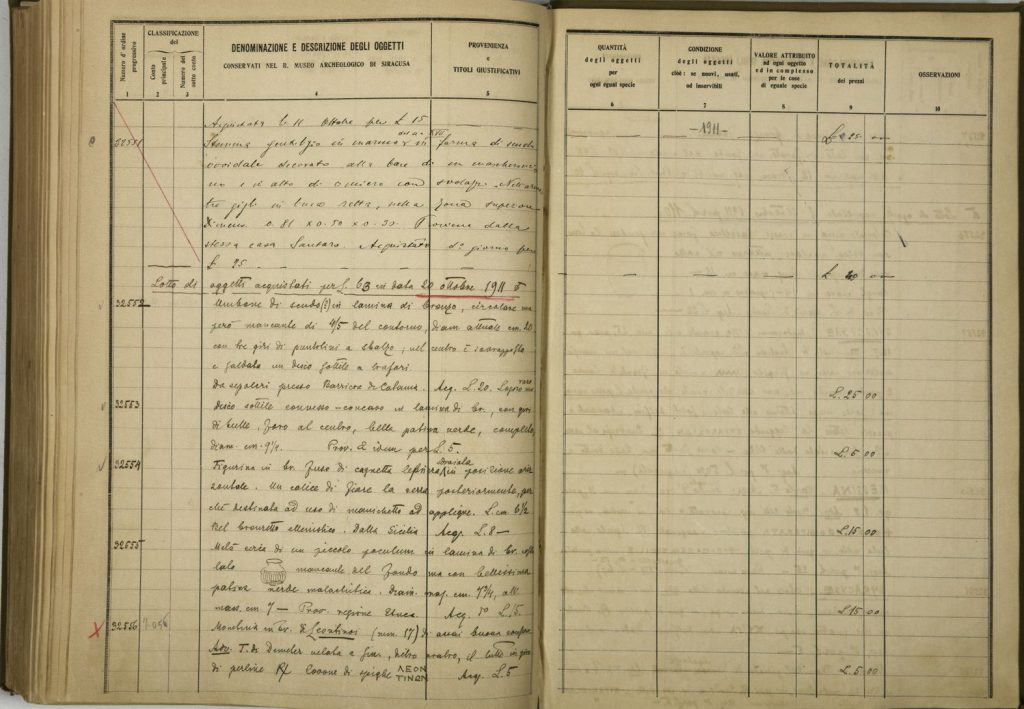 Numero d'ordine progressivo
CLASSIFICAZIONE del
Conto principale
Numero del sotto conto
DENOMINAZIONE E DESCRIZIONE DEGLI OGGETTI
CONSERVATI NEL R. MUSEO ARCHEOLOGICO DI SIRACUSA
PROVENIENZA
e
TITOLI GIUSTIFICATIVI
1 2 3 4 5
Acquistata li 11 Ottobre per £ 15
Stemma gentilizio in marmo in forma di scudo
ovoidale decorato alla base da un mascheroncino
no e in alto di
tre gigli in linea retta, nella zona superiore
0.81 x 0.50 x 0.30 Proviene dalla
stessa casa Santoro. Acquistato giorno per
£ 25
Lotto di oggetti acquistati per £. 63 in data 20 ottobre 1911
32552
Umbone di scudo(?) in lamina di bronzo, circolare ma
però mancante di 4/5 del contorno, diam. attuale cm. 20
con tre giri di puntolini a sbalzo, nel centro è
e saldato un disco sottile a trafori
Da sepolcri presso Barriera di Catania. Acq. L. 20.
32553
Disco sottile convesso-concavo in lamina di br., con giri
di bulle. Foro al centro, bella patina verde, completo,
diam. cm. Prov. idem per L. 5.
32554
Figurina in br. fuso di cagnetta sdraiata in posizione oriz
zontale. Un calice di fiore la serra posteriormente, per
chè destinata ad uso di manichetto ad applique. L. cm 6 1/2
Bel bronzetto ellenistico. Dalla Sicilia Acq. L. 8 —
32555
Metà di un piccolo poculum in lamina di br.
lato mancante del fondo ma con bellissima
patina verde malachitica. Diam. mag. cm. 7 3/4, alt.
mass. cm 7 — Prov. regione Etnea. Acq. L. 5.
32556 7056
Monetina in br. di Leontinoi (num. 17) di assai buona conserv.
Adv. T. di Demeter velata a sin., dietro aratro, il tutto in giro
di perline Rf Covone di spighe ΛΕΟΝ
ΤΙΝΩΝ Acq. L. 5
QUANTITÀ
degli oggetti
per
ogni egual specie
CONDIZIONE
degli oggetti
cioè: se nuovi, usati,
od inservibili
VALORE ATTRIBUITO
ad ogni oggetto
ed in complesso
per le cose
di eguale specie
TOTALITÀ
dei prezzi
OSSERVAZIONI
6 7 8 9 10
-1911-
L. 25 00
L. 5 00
L. 15 00
L. 15 00
L. 5 00